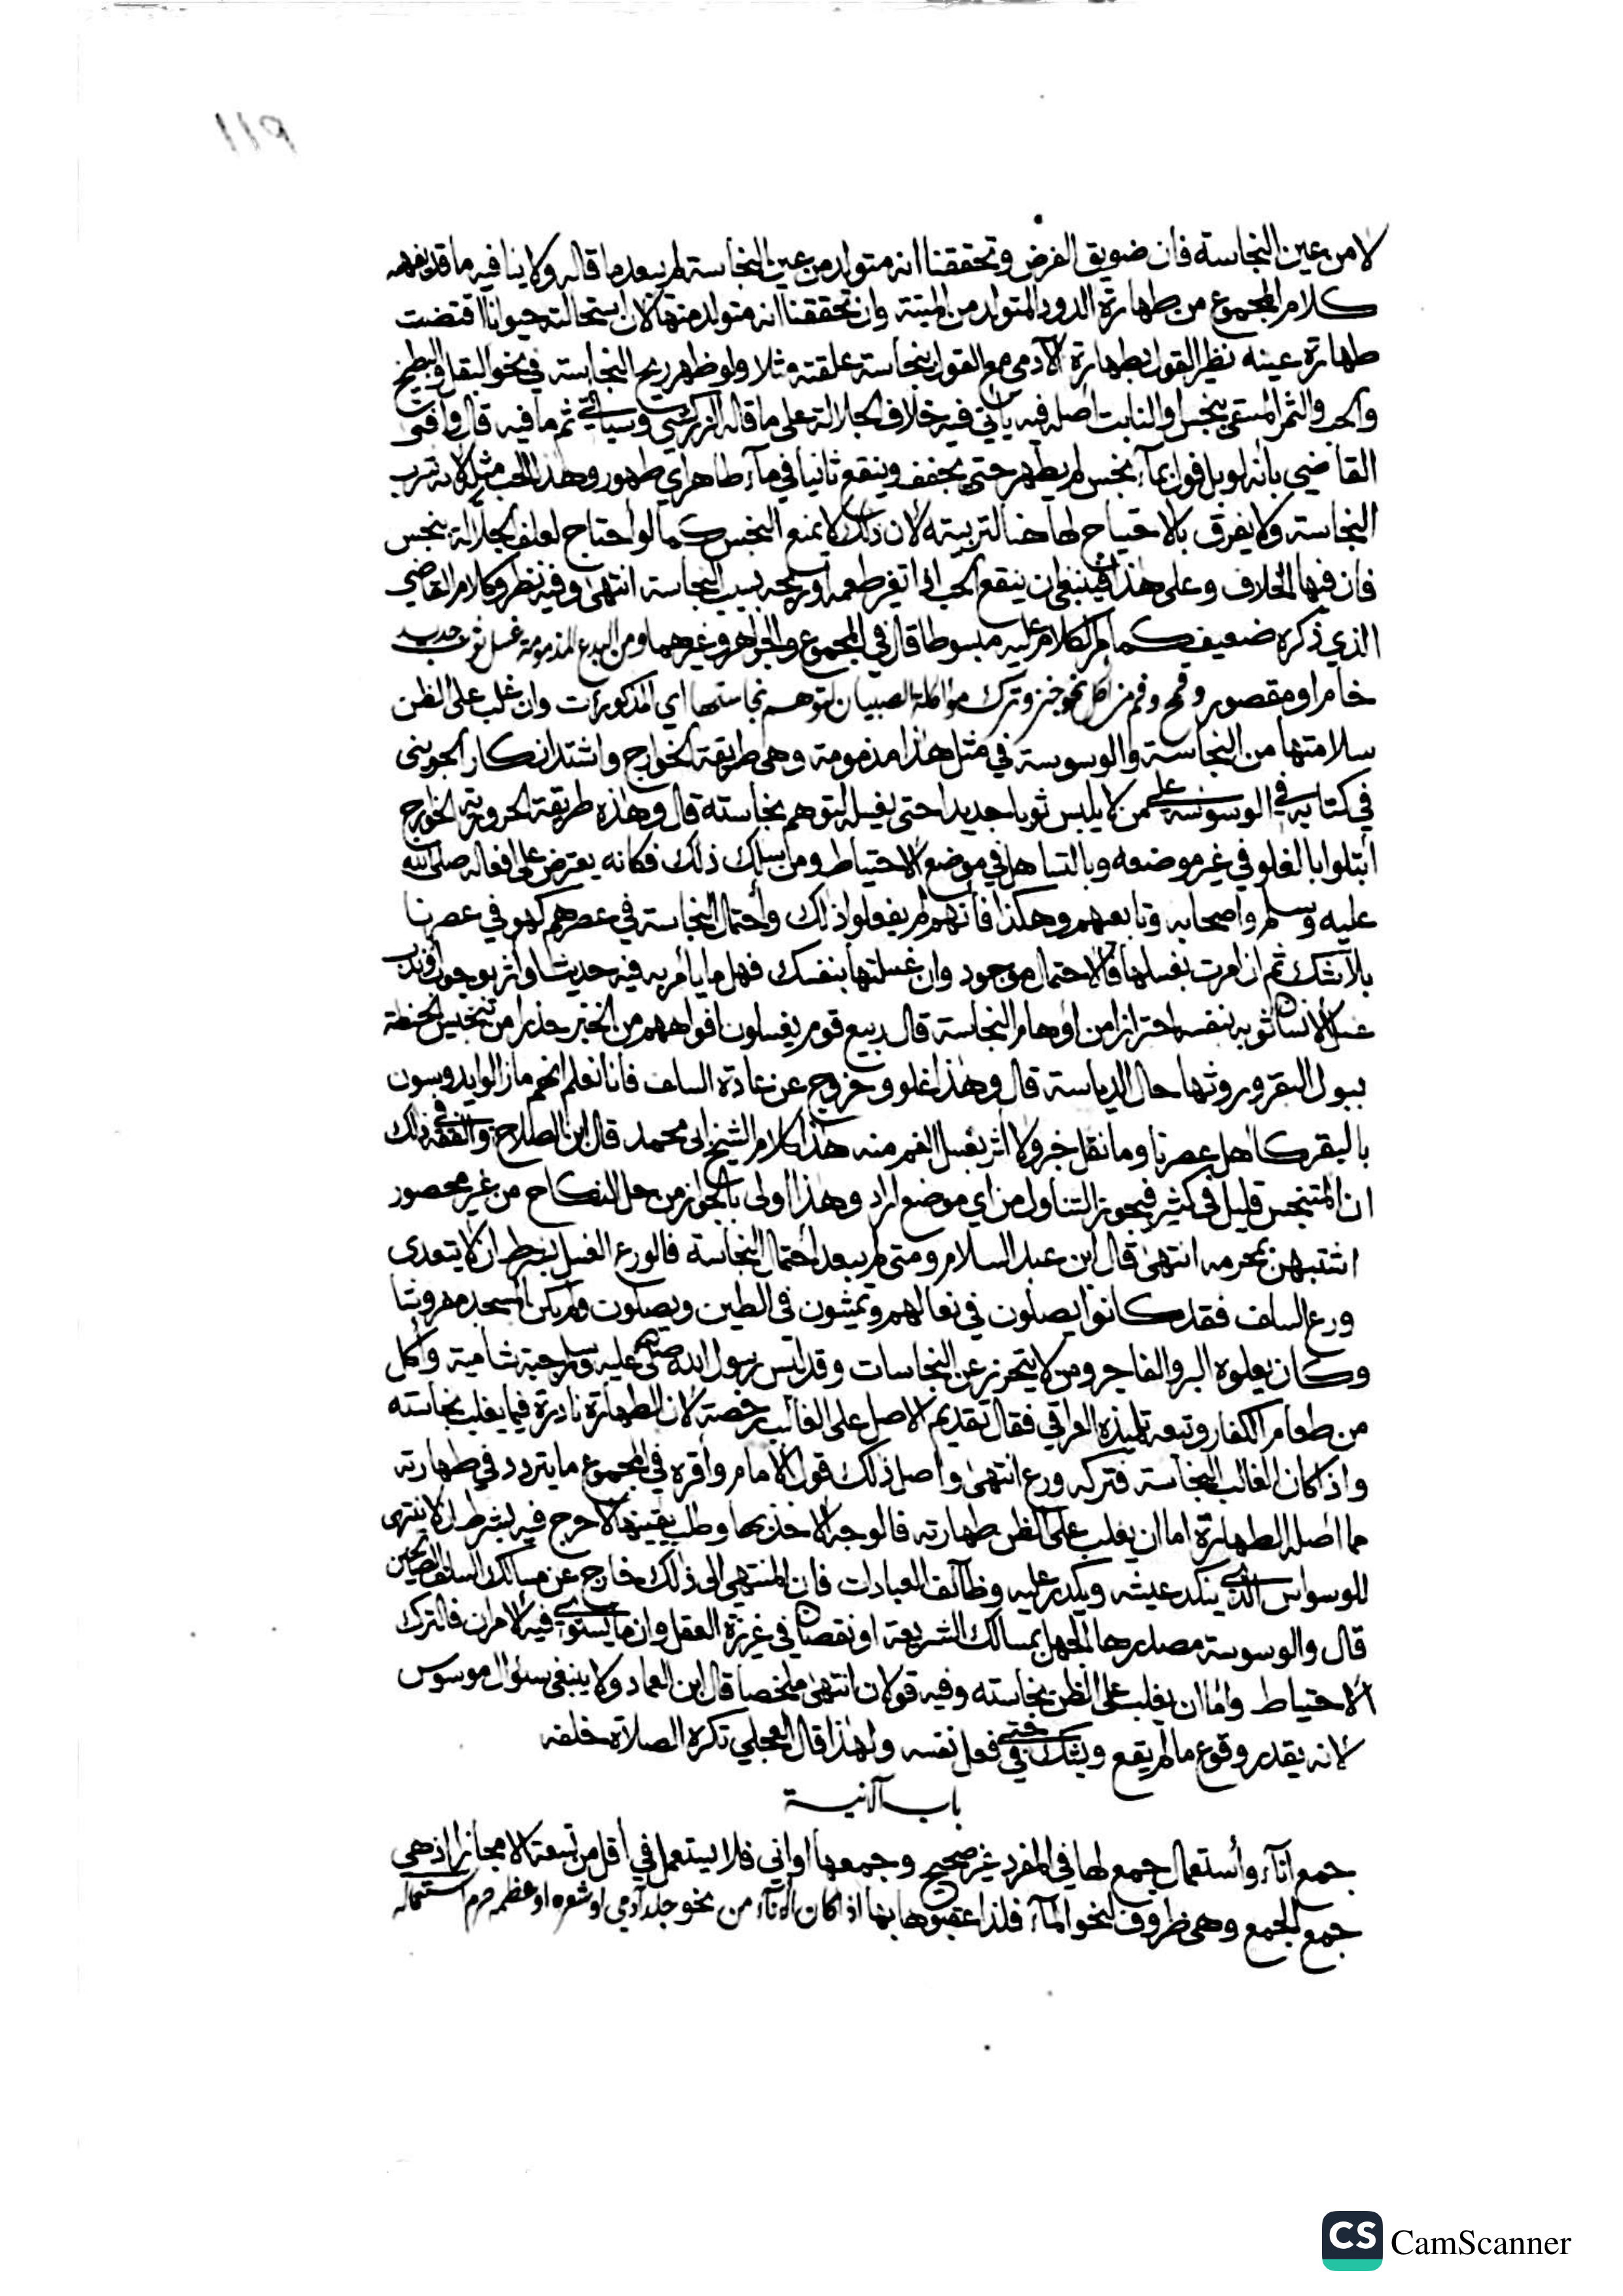 ١١٩
لا من عين النجاسة فان ضويق الفرض وتحققنا انه متولد من عين النجاسة لم يبعد ما قاله ولا ينافيه ما قد يفهمه
كلام المجموع من طهارة الدود المتولد من الميتة وان تحققنا انه متولد منها لان استحالته حيوانا اقتضت
طهارة عينه نظير القول بطهارة الآدمي مع القول بنجاسة علقته مثلا ولو ظهر ريح النجاسة في نحو البقل والبطيخ
والحب والثمر المستقى بنجس او النابت اصله فيه يأتي فيه خلاف الجلالة على ما قاله الزركشي وسيأتي ثم ما فيه قال وافتى
القاضي بانه لو بل فول بماء نجس لم يطهر حتى يجفف وينقع ثانيا في ماء طاهر اي طهور وهذا الحب مثله لانه تشرب
النجاسة ولا يفرق بالاحتياج لها هنا لتربيته لان ذلك لا يمنع النجس كما لو احتاج لعلف الجلالة بنجس
فان فيها الخلاف وعلى هذا فينبغي ان ينقع الحب اذا تغير طعمه او ريحه بسبب النجاسة انتهى وفيه نظر وكلام القاضي
الذي ذكره ضعيف كما مر الكلام عليه مبسوطا قال في المجموع والجواهر وغيرهما ومن البدع المذمومة غسل ثوب جديد
خام او مقصور وقمح وفم من اكل نحو خبز وترك مؤاكلة الصبيان لتوهم نجاستها اي المذكورات وان غلب على الظن
سلامتها من النجاسة والوسوسة في مثل هذا مذمومة وهي طريقة الخوارج واشتد انكار الجويني
في كتابه في الوسوسة على من لا يلبس ثوبا جديدا حتى يغسله لتوهم نجاسته قال وهذه طريقة الحرورية الخوارج
ابتلوا بالغلو في غير موضعه وبالتساهل في موضع الاحتياط ومن سلك ذلك فكانه يعترض على افعاله صلى الله
عليه وسلم واصحابه وتابعيهم وهكذا فانهم لم يفعلوا ذلك واحتمال النجاسة في عصرهم كهو في عصرنا
بلا شك ثم ان امرت بغسلها فالاحتمال موجود وان غسلتها بنفسك فهل ما يأمر به فيه حديث او اثر بوجوب او ندب
غسل الانسان ثوبه بنفسه احترازا من اوهام النجاسة قال ربيع قوم يغسلون افواههم من الخبز حذرا من تنجيس الحنطة
ببول البقر وروثها حال الدياسة قال وهذا غلو وخروج عن عادة السلف فانا نعلم انهم ما زالوا يدوسون
بالبقر كاهل عصرنا وما نقل خبر ولا اثر بغسل الفم منه هذا كلام الشيخ ابي محمد قال ابن الصلاح والفقه في ذلك
ان المتنجس قليل في كثير فيجوز التناول من اي موضع اراد وهذا اولى بالجواز من حل النكاح من غير محصور
اشتبهن بمحرمه انتهى قال ابن عبد السلام ومتى لم يبعد احتمال النجاسة فالورع الغسل بشرط ان لا يتعدى
ورع السلف فقد كانوا يصلون في نعالهم ويمشون في الطين ويصلون ولم يكن المسجد مفروشا
وكان يعلوه البر والفاجر ومن لا يتحرز عن النجاسات وقد لبس رسول الله صلى الله عليه وسلم جبة شامية واكل
من طعام الكفار وتبعه تلميذه القرافي فقال تقديم الاصل على الغالب رخصة لان الطهارة نادرة فيما يغلب نجاسته
واذ كان الغالب النجاسة فتركه ورع انتهى واصل ذلك قول الامام واقره في المجموع ما يتردد في طهارته
مما اصله الطهارة اما ان يغلب على الظن طهارته فالوجه الاخذ بها وطلب يقينها لا حرج فيه بشرط ان لا ينتهي
للوسواس الذي ينكد عيشه ويكدر عليه وظائف العبادات فان المنتهي الى ذلك خارج عن مسالك السلف الصالحين
قال والوسوسة مصدرها الجهل بمسالك الشريعة او نقصان في غريزة العقل وان ما يستوي فيه الامران فالترك
الاحتياط واما ان يغلب على الظن نجاسته وفيه قولان انتهى ملخصا قال ابن العماد ولا ينبغي سؤال موسوس
لانه يقدر وقوع ما لم يقع ويشك حتى في فعل نفسه ولهذا قال العجلي تكره الصلاة خلفه
باب الآنية
جمع اناء واستعمال جمع لها في المفرد غير صحيح وجمعها اواني فلا يستعمل في اقل من تسعة الا مجازا اذ هي
جمع الجمع وهي ظروف لنحو الماء فلذا عقبوها بها اذا كان الاناء من نحو جلد آدمي او شعره او عظمه حرم استعماله
CS CamScanner